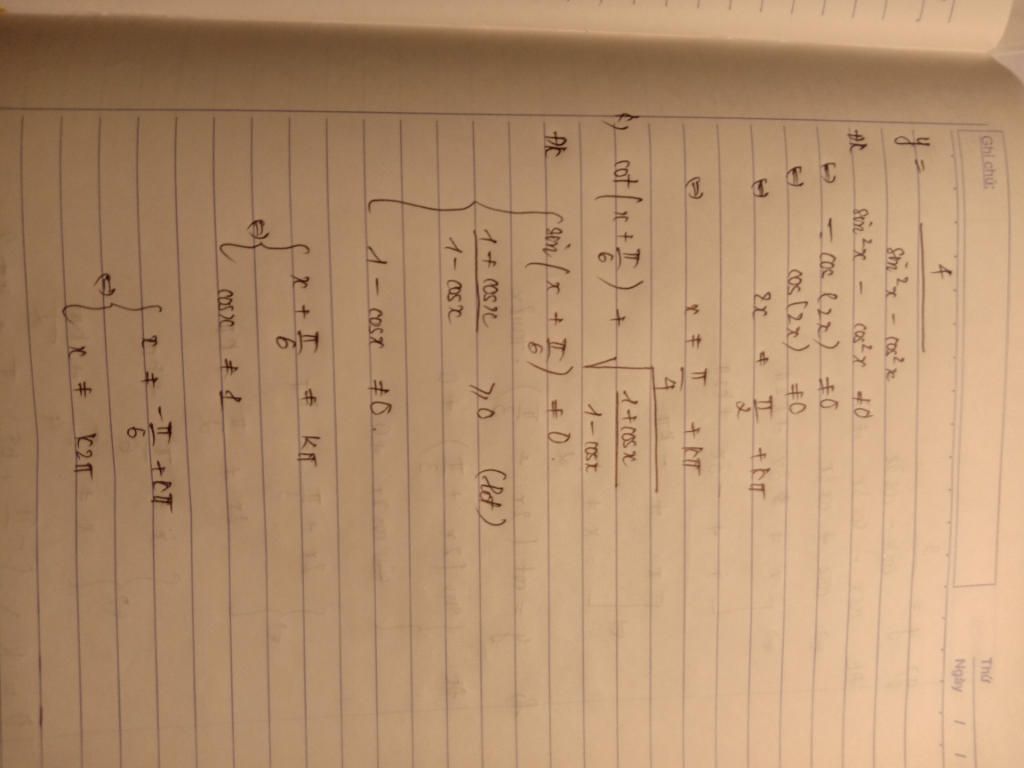 Ghi chú:
Thứ
Ngày / /
y = 4 / (sin²x - cos²x)
ĐK sin²x - cos²x ≠ 0
⇔ - cos(2x) ≠ 0
⇔ cos(2x) ≠ 0
⇔ 2x ≠ π/2 + kπ
⇔ x ≠ π/4 + kπ
cot(x + π/6) + √((1+cosx)/(1-cosx))
ĐK { sin(x + π/6) ≠ 0
(1 + cosx)/(1 - cosx) ≥ 0 (lđ)
1 - cosx ≠ 0.
⇔ { x + π/6 ≠ kπ
cosx ≠ 1
⇔ { x ≠ -π/6 + kπ
x ≠ k2π